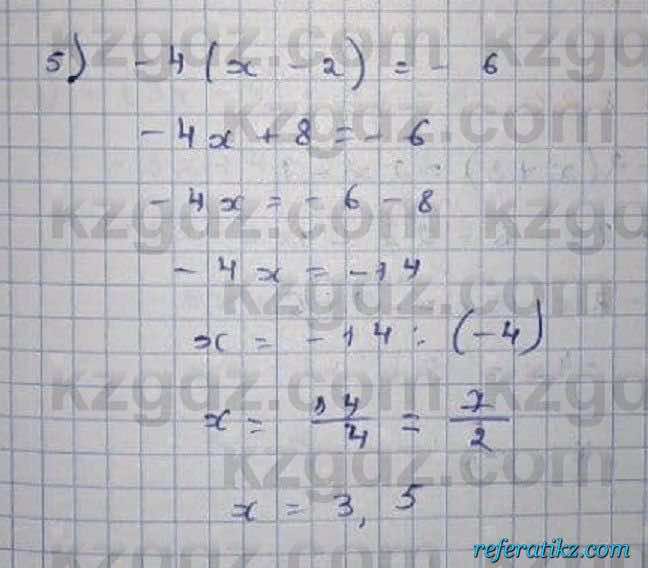 kzgdz.com
5) -4(x - 2) = - 6
-4x + 8 = - 6
kzgdz.com
- 4x = - 6 - 8
- 4x = -14
kzgdz.com
x = -14 : (-4)
kzgdz.com
x = 14/4 = 7/2
kzgdz.com
x = 3,5
kzgdz.com
referatikz.com